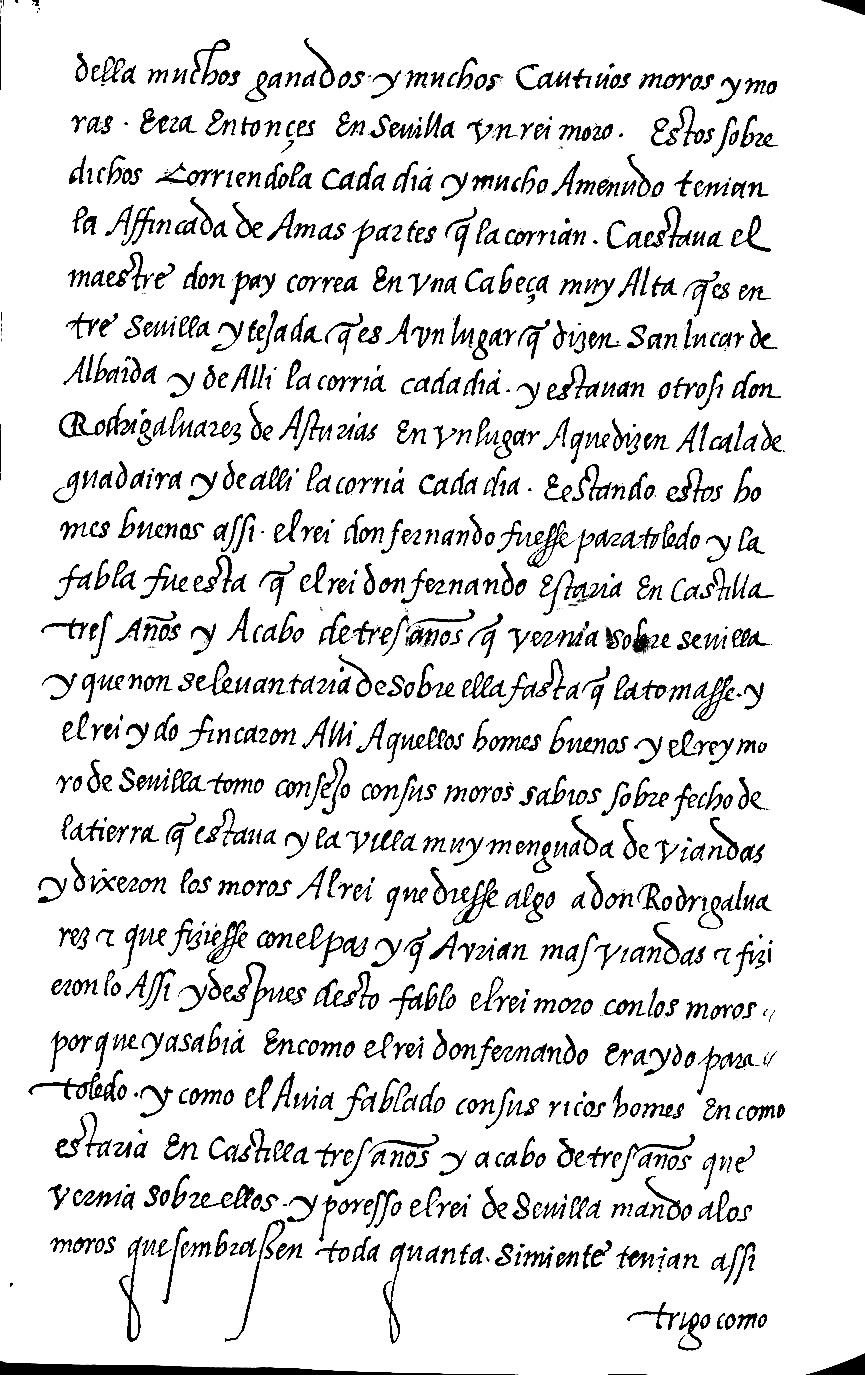 della muchos ganados y muchos Cautiuos moros y mo
ras. Eera Entonçes En Seuilla vn rei moro. Estos sobre
dichos Corriendola cada dia y mucho Amenudo tenian
la Affincada de Amas partes q̃ la corrian. Ca estaua el
maestre don pay correa En vna Cabeça muy Alta q̃ es en
tre Seuilla y tejada q̃ es A vn lugar q̃ dizen San lucar de
Albaida y de Alli la corriá cada diá. y estauan otrosi don
Rodrigaluarez de Asturias En vn lugar A que dizen Alcala de
guadaira y de alli la corriá cada dia. E estando estos ho
mes buenos assi. el rei don fernando fuesse para toledo y la
fabla fue esta q̃ el rei don fernando Estaria En Castilla
tres Años y Acabo de tres años q̃ vernia sobre seuilla
y que non se leuantaria de Sobre ella fasta q̃ la tomasse. y
el rei ydo fincaron Alli Aquellos homes buenos. y el rey mo
ro de Seuilla tomo consejo con sus moros sabios sobre fecho de
la tierra q̃ estaua y la villa muy menguada de viandas
y dixeron los moros Al rei que diesse algo a don Rodrigalua
rez ⁊ que fiziesse con el paz y q̃ Aurian mas viandas ⁊ fizi
eron lo Assi y despues desto fablo el rei moro con los moros〃
por que ya sabiá En como el rei don fernando Era ydo para〃
toledo. y como el Auia fablado con sus ricos homes En como
estaria En Castilla tres años y acabo de tres años que
vernia sobre ellos. y por esso el rei de Seuilla mando a los
moros que sembrassen toda quanta. Simiente tenian assi
trigo como